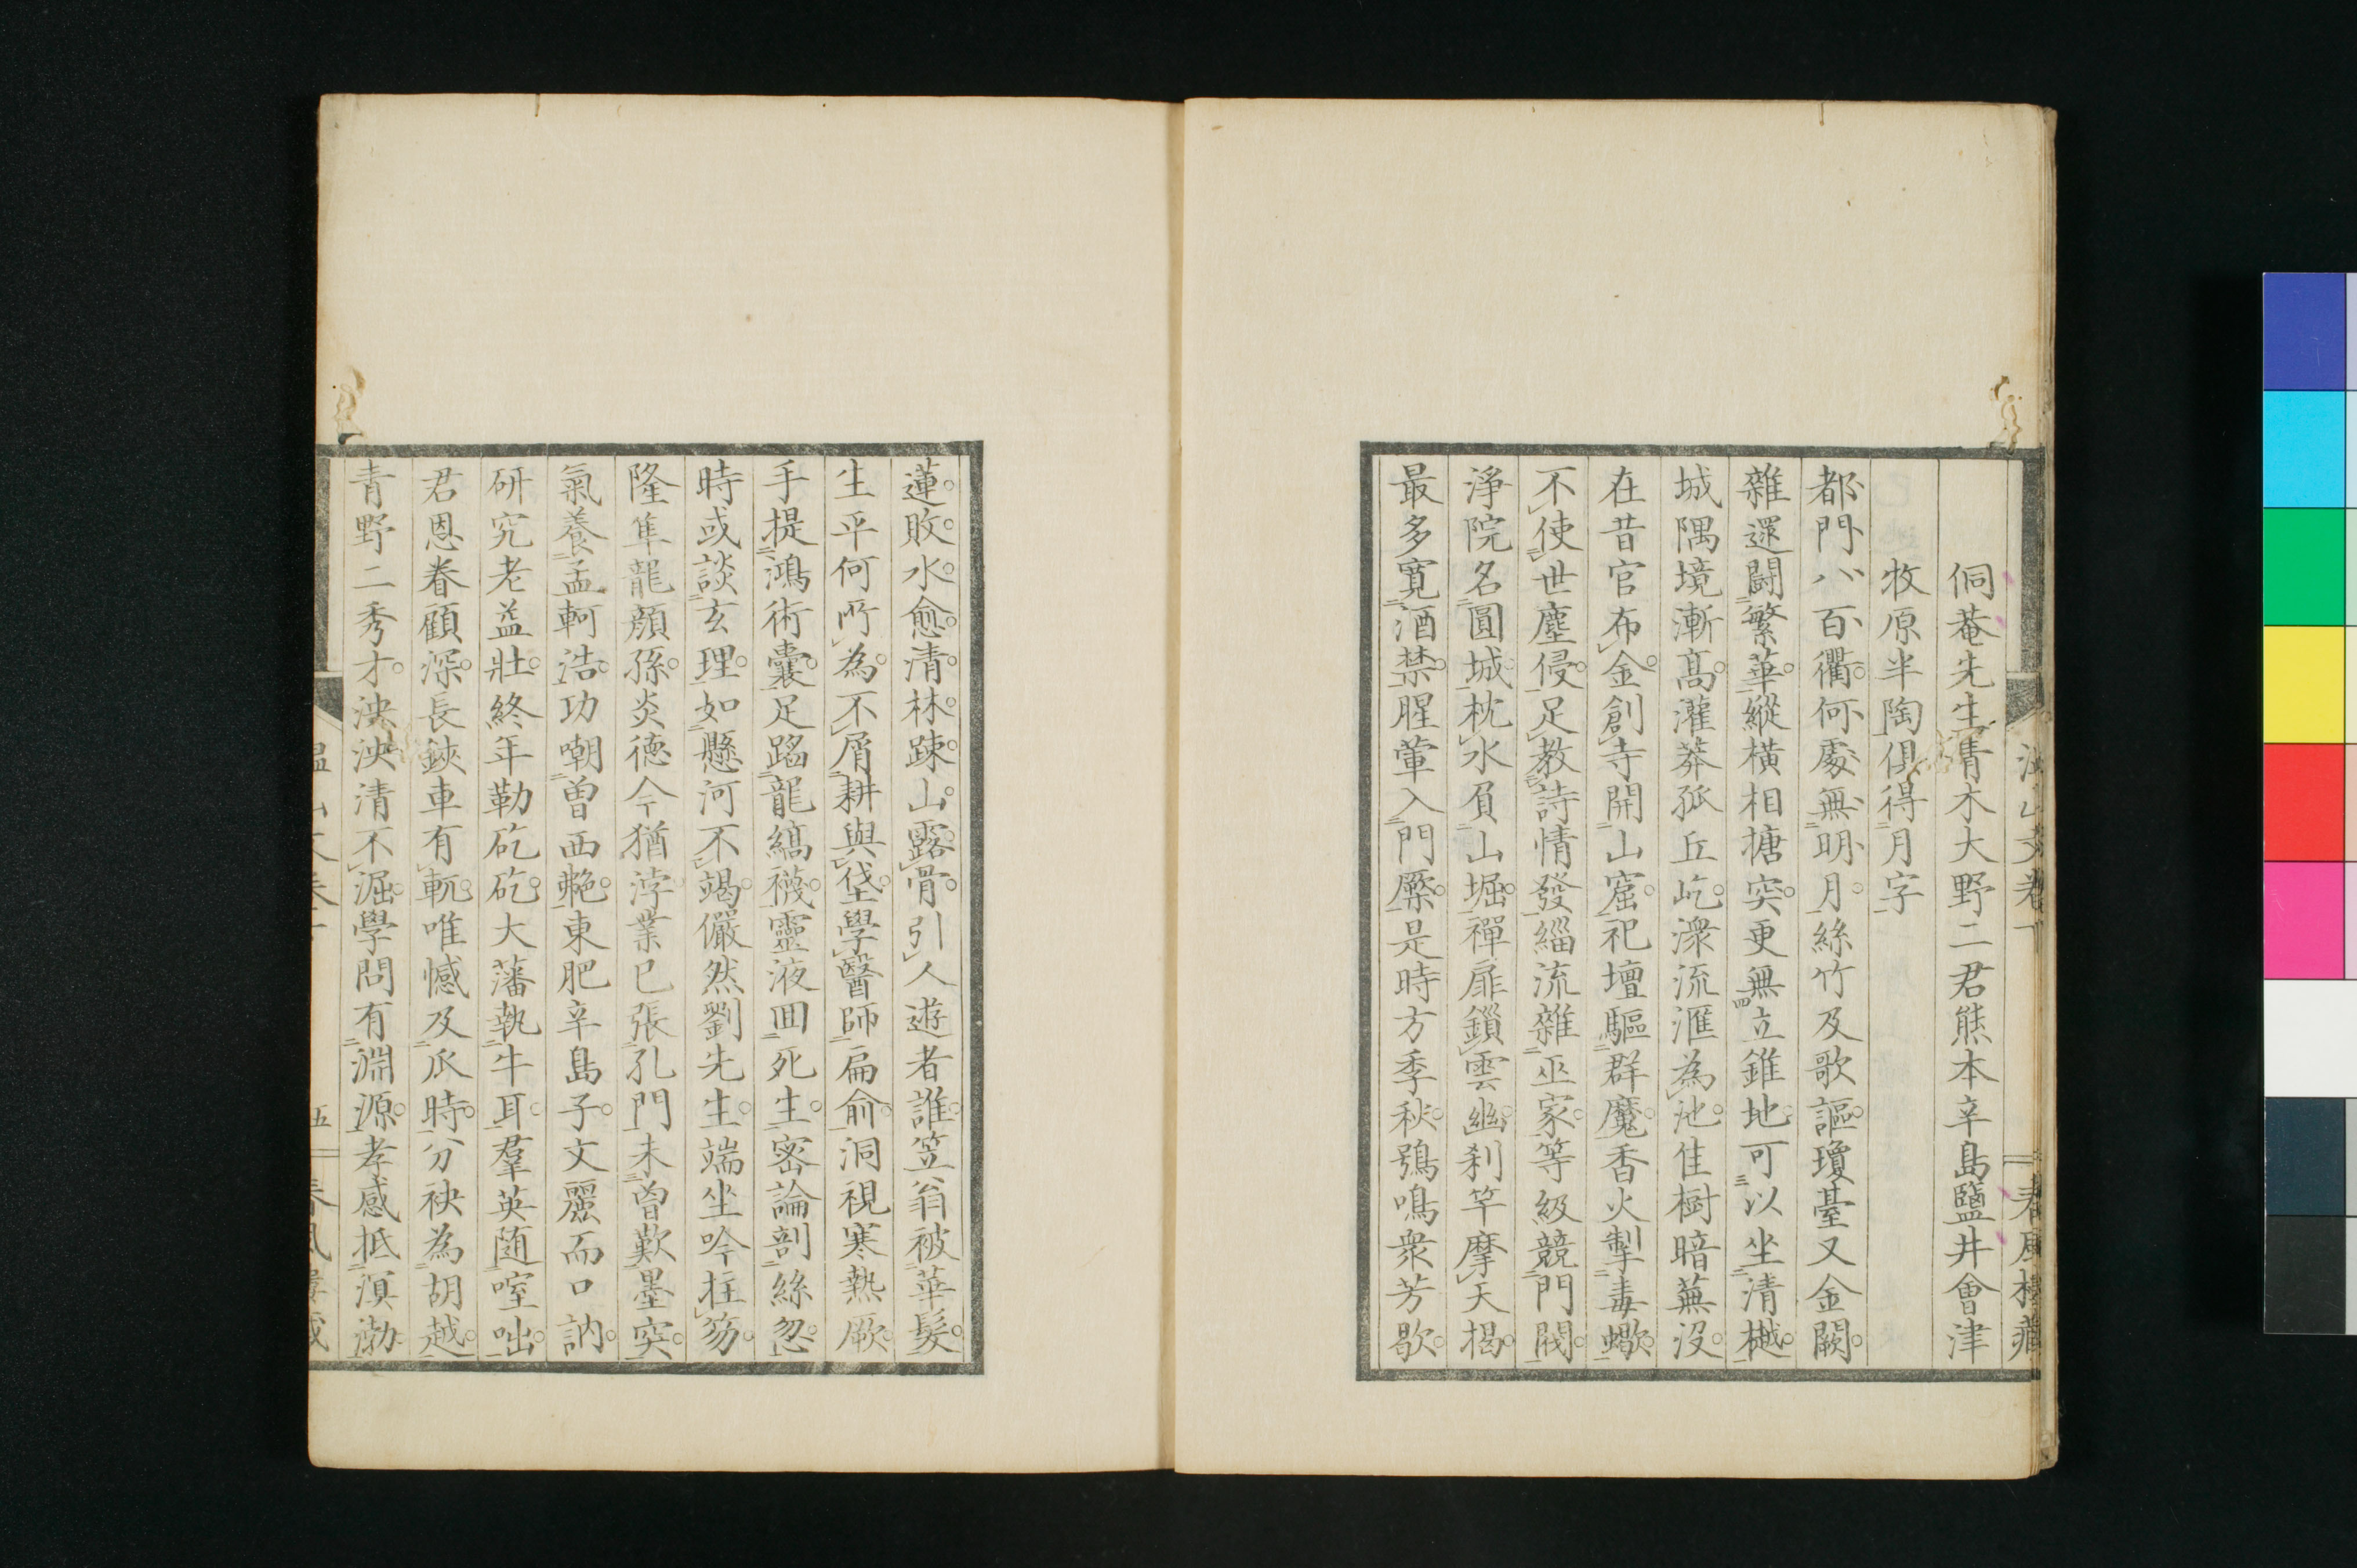 侗菴先生青木大野二君熊本辛島鹽井會津
牧原半陶俱得月字
都門八百衢何處無明月絲竹及歌謳瓊臺又金闕
雜還鬪繁華縱橫相搪突更無立錐地可以坐清樾
城隅境漸高灌莽孤丘屹濴流滙為池佳樹暗蕪沒
在昔官布金創寺開山窟祀壇驅群魔香火掣毒蠍
不使世塵侵足教詩情發緇流雜巫家等級競門閥
淨院名圓城枕水負山堀禪扉鎖雲幽刹竿摩天揭
最多寬酒禁腥葷入門橜是時方季秋鵶鳴衆芳歇
蓮敗水愈清林踈山露骨引人遊者誰笠翁被華髮
生平何所為不屑耕與垡學醫師扁俞洞視寒熱厥
手提鴻術囊足蹈龍縞襪靈液囬死生密論剖絲忽
時或談玄理如懸河不竭儼然劉先生端坐吟拄笏
隆隼龍顏孫炎德今猶浡業已張孔門未曾歎墨突
氣養孟軻浩功嘲曾西艴東肥辛島子文麗而口訥
研究老益壯終年勒矻矻大藩執牛耳羣英随啌咄
君恩眷顧深長鋏車有軏唯憾及瓜時分袂為胡越
青野二秀才泱泱清不淈學問有淵源孝感抵溟渤
五